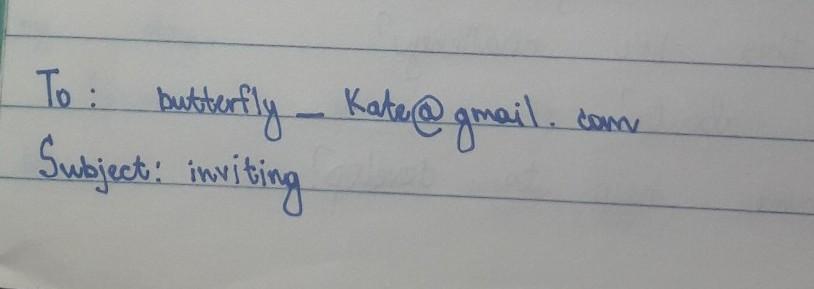 To: butterfly_Kate@gmail.com
Subject: inviting